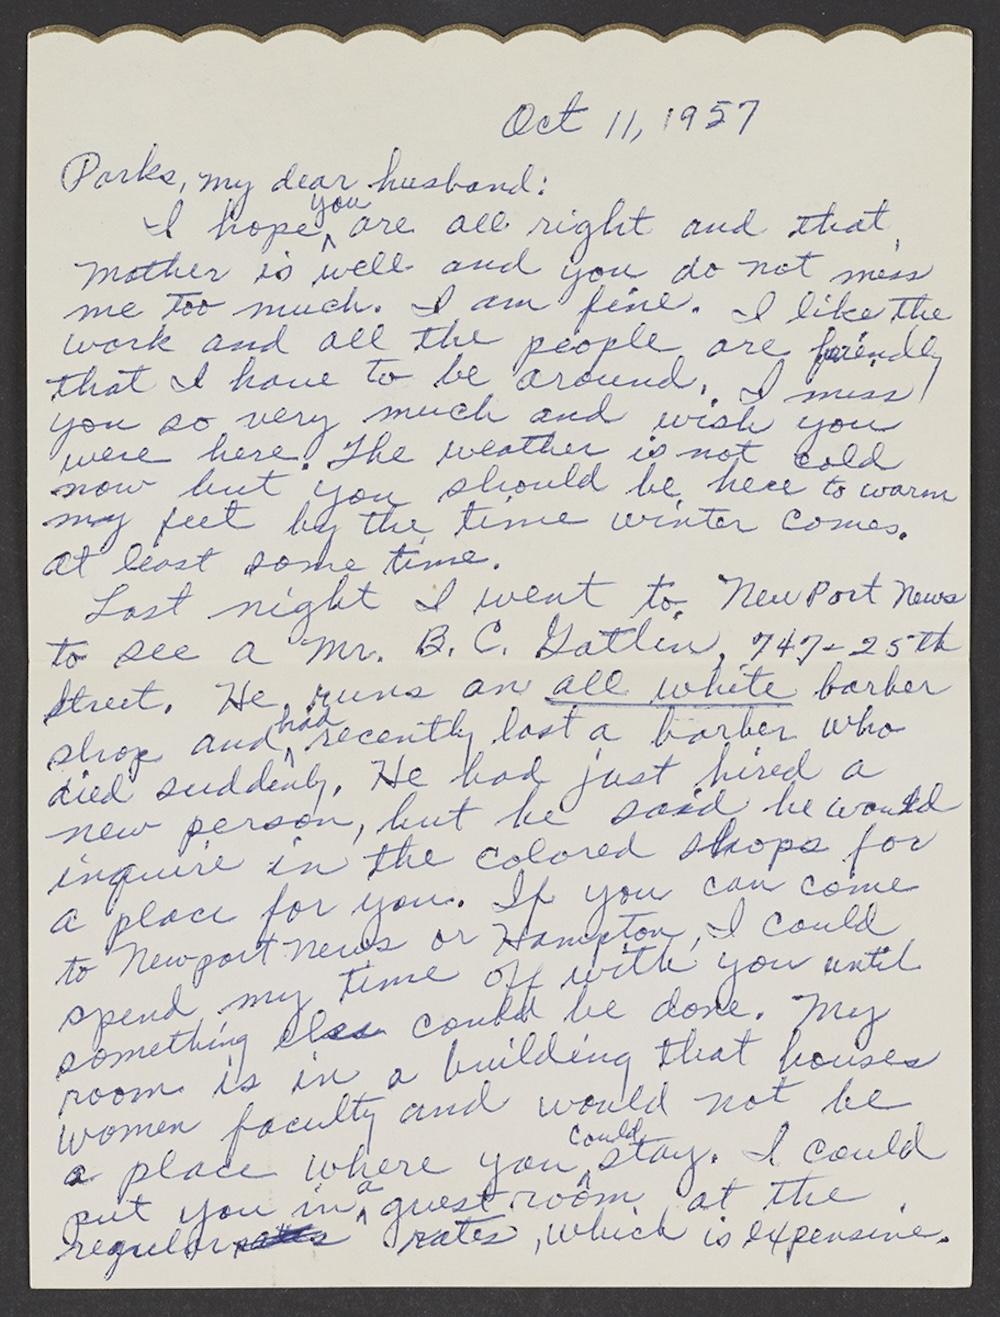 Oct 11, 1957
Parks, my dear husband:
I hope you are all right and that
Mother is well and you do not miss
me too much. I am fine. I like the
work and all the people are friendly
that I have to be around. I miss
you so very much and wish you
were here. The weather is not cold
now but you should be here to warm
my feet by the time winter comes.
at least some time.
Last night I went to NewPort News
to see a Mr. B. C. Gatlin, 747-25th
Street. He runs an all white barber
shop and had recently lost a barber who
died suddenly. He had just hired a
new person, but he said he would
inquire in the colored shops for
a place for you. If you can come
to Newport News or Hampton, I could
spend my time off with you until
something else could be done. My
room is in a building that houses
women faculty and would not be
a place where you could stay. I could
put you in a guest room at the
regular rates, which is expensive.